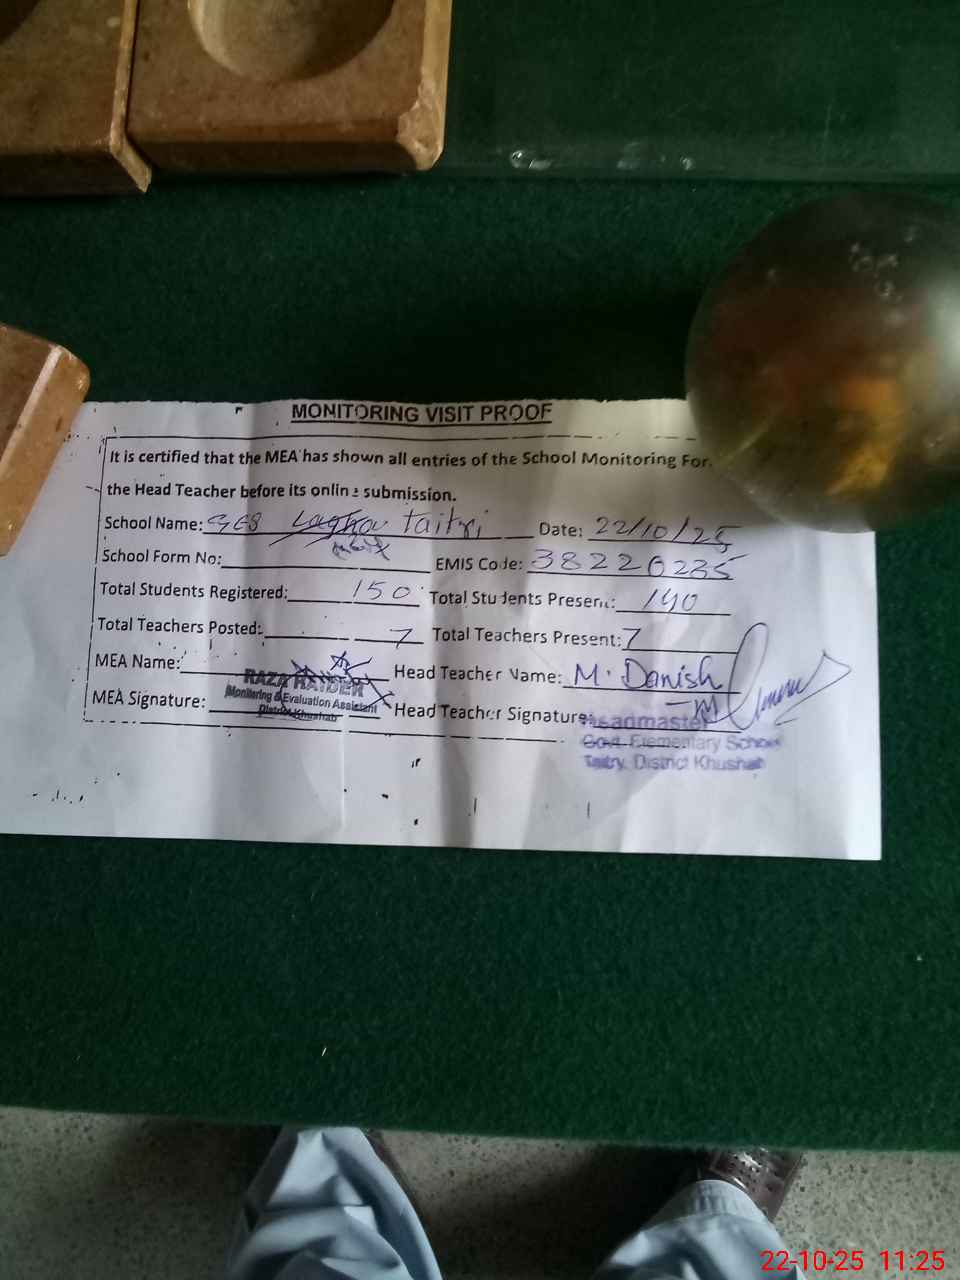 MONITORING VISIT PROOF
It is certified that the MEA has shown all entries of the School Monitoring For
the Head Teacher before its online submission.
School Name: Taitri Date: 22/10/25
School Form No: EMIS Code: 38220235
Total Students Registered: 150 Total Students Present: 140
Total Teachers Posted: 7 Total Teachers Present: 7
MEA Name: Head Teacher Name: M. Danish
RAZA HAIDER
Monitoring & Evaluation Assistant
District Khushab
MEA Signature: Head Teacher Signature:
Govt. Elementary School
Taitry, District Khushab
22-10-25 11:25